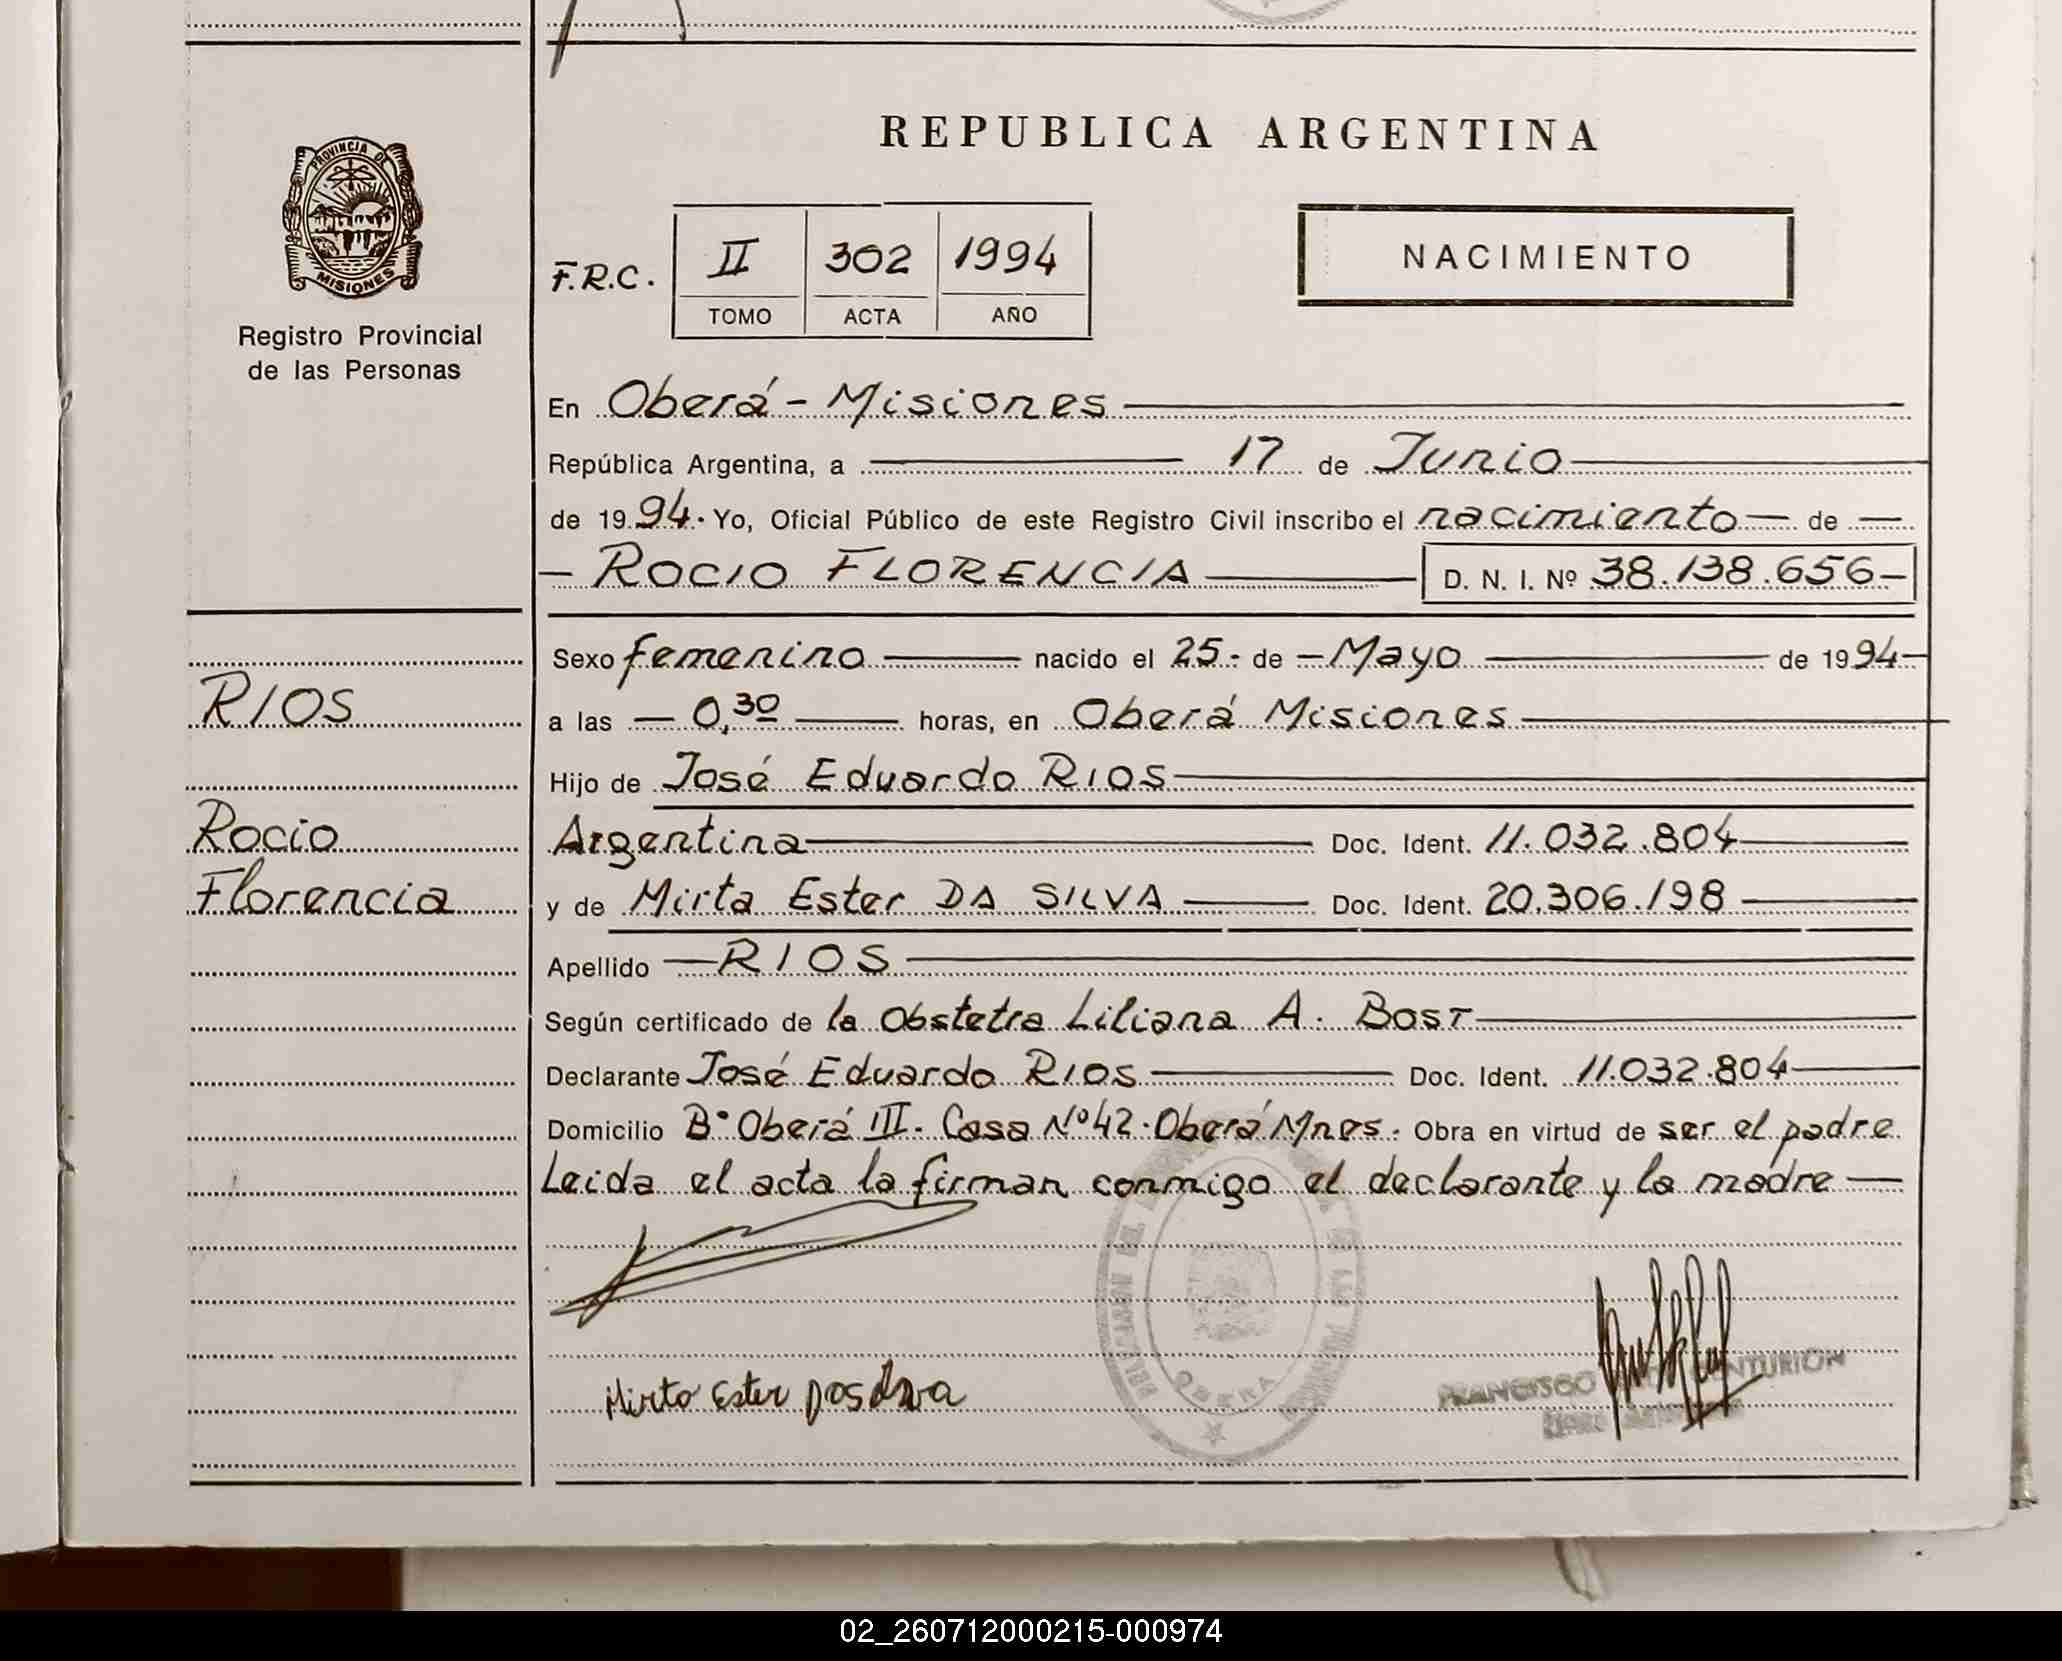 REPUBLICA ARGENTINA
PROVINCIA DE
MISIONES
Registro Provincial
de las Personas
F.R.C.
II 302 1994
TOMO ACTA AÑO
NACIMIENTO
En Oberá - Misiones
República Argentina, a 17 de Junio
de 1994. Yo, Oficial Público de este Registro Civil inscribo el nacimiento de
ROCIO FLORENCIA D. N. I. Nº 38.138.656
Sexo femenino nacido el 25 de Mayo de 1994
RIOS
a las 0,30 horas, en Oberá Misiones
Hijo de José Eduardo RIOS
Rocio
Argentina Doc. Ident. 11.032.804
Florencia
y de Mirta Ester DA SILVA Doc. Ident. 20.306.198
Apellido RIOS
Según certificado de la Obstetra Liliana A. Bost
Declarante José Eduardo RIOS Doc. Ident. 11.032.804
Domicilio Bº Oberá III. Casa Nº 42. Oberá Mnes. Obra en virtud de ser el padre
Leida el acta la firman conmigo el declarante y la madre
OBERA
Mirta Ester
FRANCISCO
02_260712000215-000974